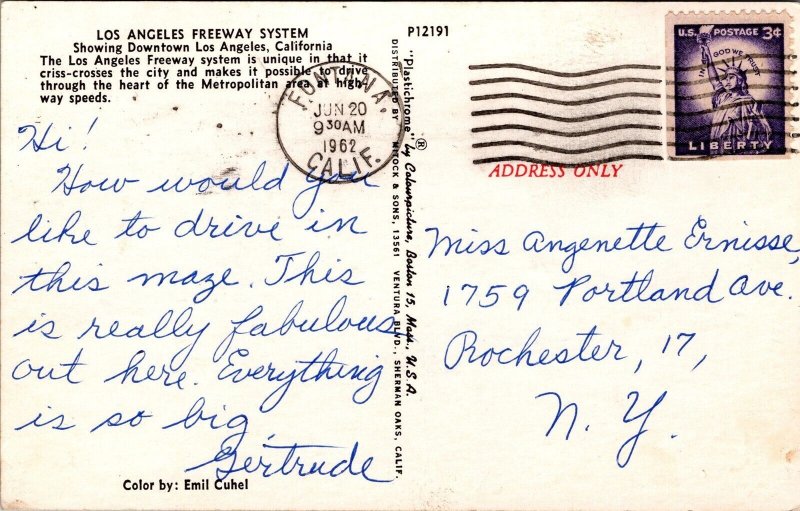 LOS ANGELES FREEWAY SYSTEM
Showing Downtown Los Angeles, California
The Los Angeles Freeway system is unique in that it
criss-crosses the city and makes it possible to drive
through the heart of the Metropolitan area at high-
way speeds.
Hi!
How would you
like to drive in
this maze. This
is really fabulous
out here. Everything
is so big.
Gertrude
Color by: Emil Cuhel
P12191
"Plastichrome"® by Colourpicture, Boston 15, Mass., U.S.A.
DISTRIBUTED BY MITOCK & SONS, 13561 VENTURA BLVD., SHERMAN OAKS, CALIF.
FONTANA,
JUN 20
9 30 AM
1962
CALIF.
U.S. POSTAGE 3¢
IN GOD WE TRUST
LIBERTY
ADDRESS ONLY
Miss Angenette Ernisse,
1759 Portland Ave.
Rochester, 17,
N. Y.